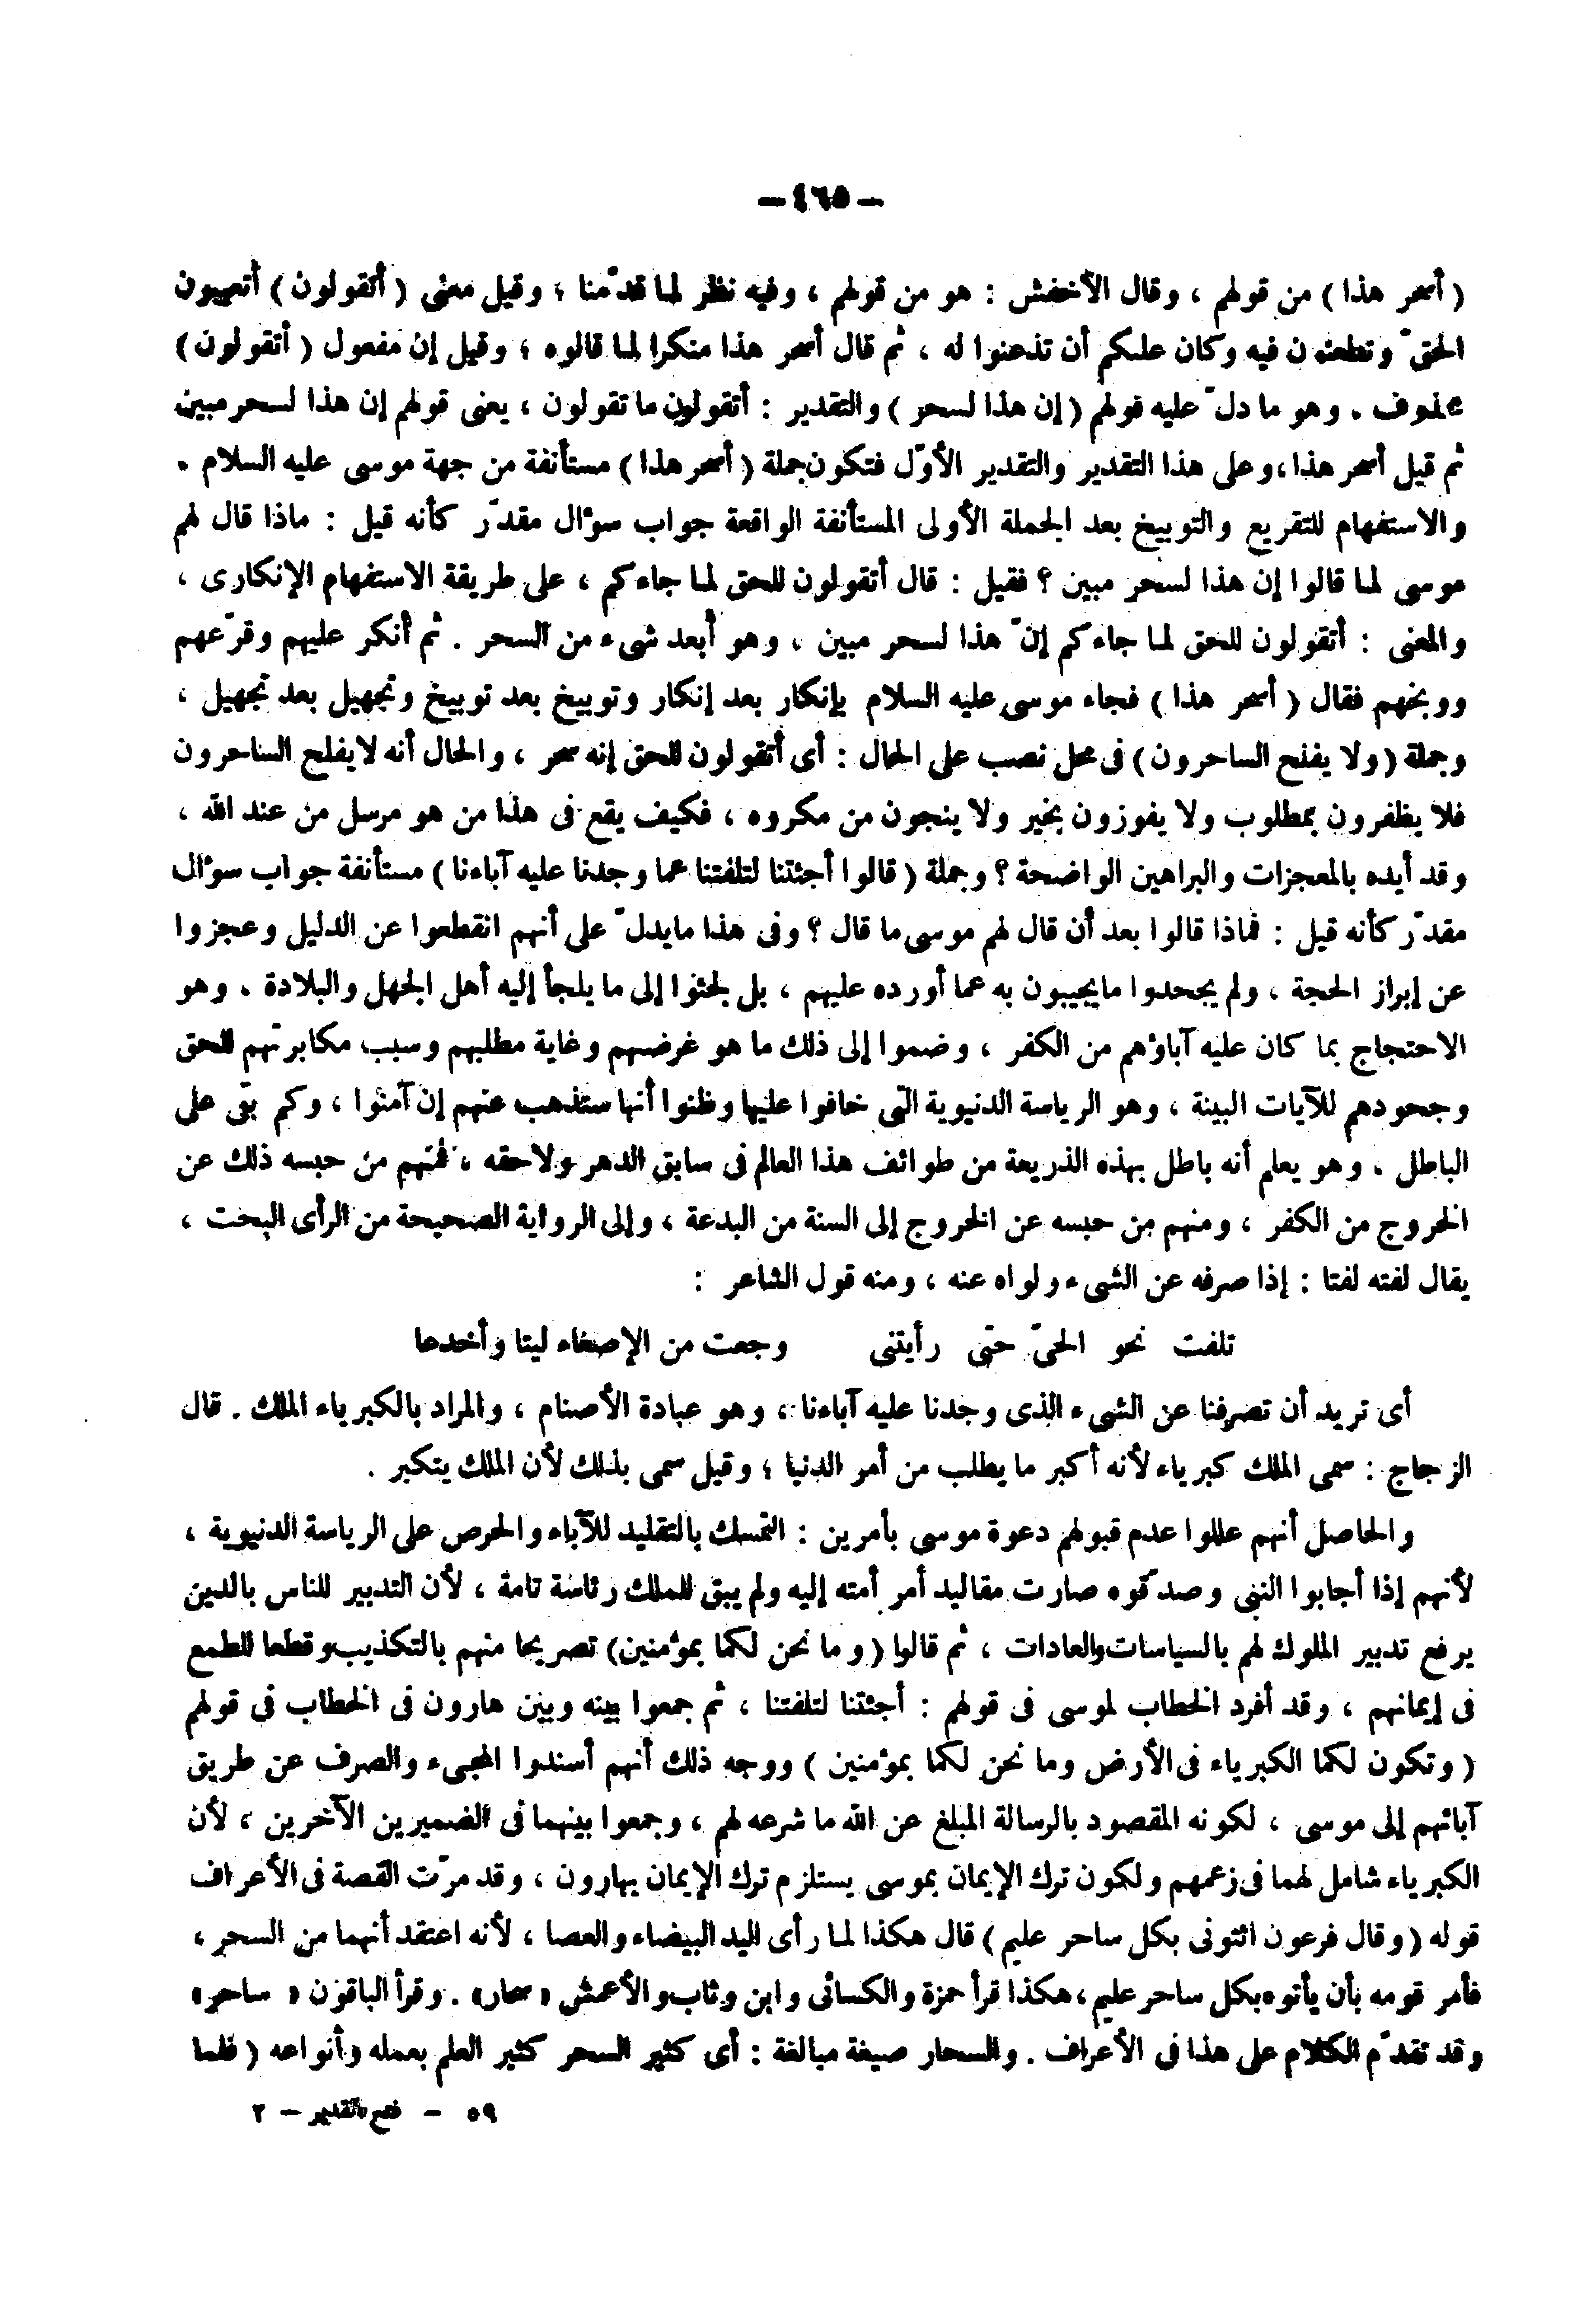 — ٤٦٥ —
( أسحر هذا ) من قولهم ، وقال الأخفش : هو من قولهم ، وفيه نظر لما قدّمنا ؛ وقيل معنى ( أتقولون ) أتعيبون
الحقّ وتطعنون فيه وكان عليكم أن تذعنوا له ، ثم قال أسحر هذا منكرا لما قالوه ؛ وقيل إن مفعول ( أتقولون )
محذوف . وهو ما دلّ عليه قولهم ( إن هذا لسحر ) والتقدير : أتقولون ما تقولون ، يعنى قولهم إن هذا لسحر مبين
ثم قيل أسحر هذا ، وعلى هذا التقدير والتقدير الأوّل فتكون جملة ( أسحر هذا ) مستأنفة من جهة موسى عليه السلام .
والاستفهام للتقريع والتوبيخ بعد الجملة الأولى المستأنفة الواقعة جواب سؤال مقدّر كأنه قيل : ماذا قال لهم
موسى لما قالوا إن هذا لسحر مبين ؟ فقيل : قال أتقولون للحق لما جاءكم ، على طريقة الاستفهام الإنكارى ،
والمعنى : أتقولون للحق لما جاءكم إنّ هذا لسحر مبين ، وهو أبعد شىء من السحر . ثم أنكر عليهم وقرّعهم
ووبخهم فقال ( أسحر هذا ) فجاء موسى عليه السلام بإنكار بعد إنكار وتوبيخ بعد توبيخ وتجهيل بعد تجهيل ،
وجملة ( ولا يفلح الساحرون ) فى محل نصب على الحال : أى أتقولون للحق إنه سحر ، والحال أنه لايفلح الساحرون
فلا يظفرون بمطلوب ولا يفوزون بخير ولا ينجون من مكروه ، فكيف يقع فى هذا من هو مرسل من عند الله ،
وقد أيده بالمعجزات والبراهين الواضحة ؟ وجملة ( قالوا أجئتنا لتلفتنا عما وجدنا عليه آباءنا ) مستأنفة جواب سؤال
مقدّر كأنه قيل : فماذا قالوا بعد أن قال لهم موسى ما قال ؟ وفى هذا مايدلّ على أنهم انقطعوا عن الدليل وعجزوا
عن إبراز الحجة ، ولم يجحدوا مايجيبون به عما أورده عليهم ، بل لجئوا إلى ما يلجأ إليه أهل الجهل والبلادة . وهو
الاحتجاج بما كان عليه آباؤهم من الكفر ، وضموا إلى ذلك ما هو غرضهم وغاية مطلبهم وسبب مكابرتهم للحق
وجحودهم للآيات البينة ، وهو الرياسة الدنيوية التى خافوا عليها وظنوا أنها ستذهب عنهم إن آمنوا ، وكم بقى على
الباطل . وهو يعلم أنه باطل بهذه الذريعة من طوائف هذا العالم فى سابق الدهر ولاحقه ، فمنهم من حبسه ذلك عن
الخروج من الكفر ، ومنهم من حبسه عن الخروج إلى السنة من البدعة ، وإلى الرواية الصحيحة من الرأى البحت ،
يقال لفته لفتا : إذا صرفه عن الشىء ولواه عنه ، ومنه قول الشاعر :
تلفت نحو الحىّ حتى رأيتنى وجعت من الإصغاء ليتا وأخدعا
أى تريد أن تصرفنا عن الشىء الذى وجدنا عليه آباءنا ، وهو عبادة الأصنام ، والمراد بالكبرياء الملك . قال
الزجاج : سمى الملك كبرياء لأنه أكبر ما يطلب من أمر الدنيا ؛ وقيل سمى بذلك لأن الملك يتكبر .
والحاصل أنهم عللوا عدم قبولهم دعوة موسى بأمرين : التمسك بالتقليد للآباء والحرص على الرياسة الدنيوية ،
لأنهم إذا أجابوا النبى وصدّقوه صارت مقاليد أمر أمته إليه ولم يبق للملك رئاسة تامة ، لأن التدبير للناس بالدين
يرفع تدبير الملوك لهم بالسياسات والعادات ، ثم قالوا ( وما نحن لكما بمؤمنين ) تصريحا منهم بالتكذيب وقطعا للطمع
فى إيمانهم ، وقد أفرد الخطاب لموسى فى قولهم : أجئتنا لتلفتنا ، ثم جمعوا بينه وبين هارون فى الخطاب فى قولهم
( وتكون لكما الكبرياء فى الأرض وما نحن لكما بمؤمنين ) ووجه ذلك أنهم أسندوا المجىء والصرف عن طريق
آبائهم إلى موسى ، لكونه المقصود بالرسالة المبلغ عن الله ما شرعه لهم ، وجمعوا بينهما فى الضميرين الآخرين ، لأن
الكبرياء شامل لهما فى زعمهم ولكون ترك الإيمان بموسى يستلزم ترك الإيمان بهارون ، وقد مرّت القصة فى الأعراف
قوله ( وقال فرعون ائتونى بكل ساحر عليم ) قال هكذا لما رأى اليد البيضاء والعصا ، لأنه اعتقد أنهما من السحر ،
فأمر قومه بأن يأتوه بكل ساحر عليم ، هكذا قرأ حمزة والكسائى وابن وثاب والأعمش « سحار » . وقرأ الباقون « ساحر »
وقد تقدّم الكلام على هذا فى الأعراف . والسحار صيغة مبالغة : أى كثير السحر كثير العلم بعمله وأنواعه ( فلما
٥٩ — فتح القدير — ٢